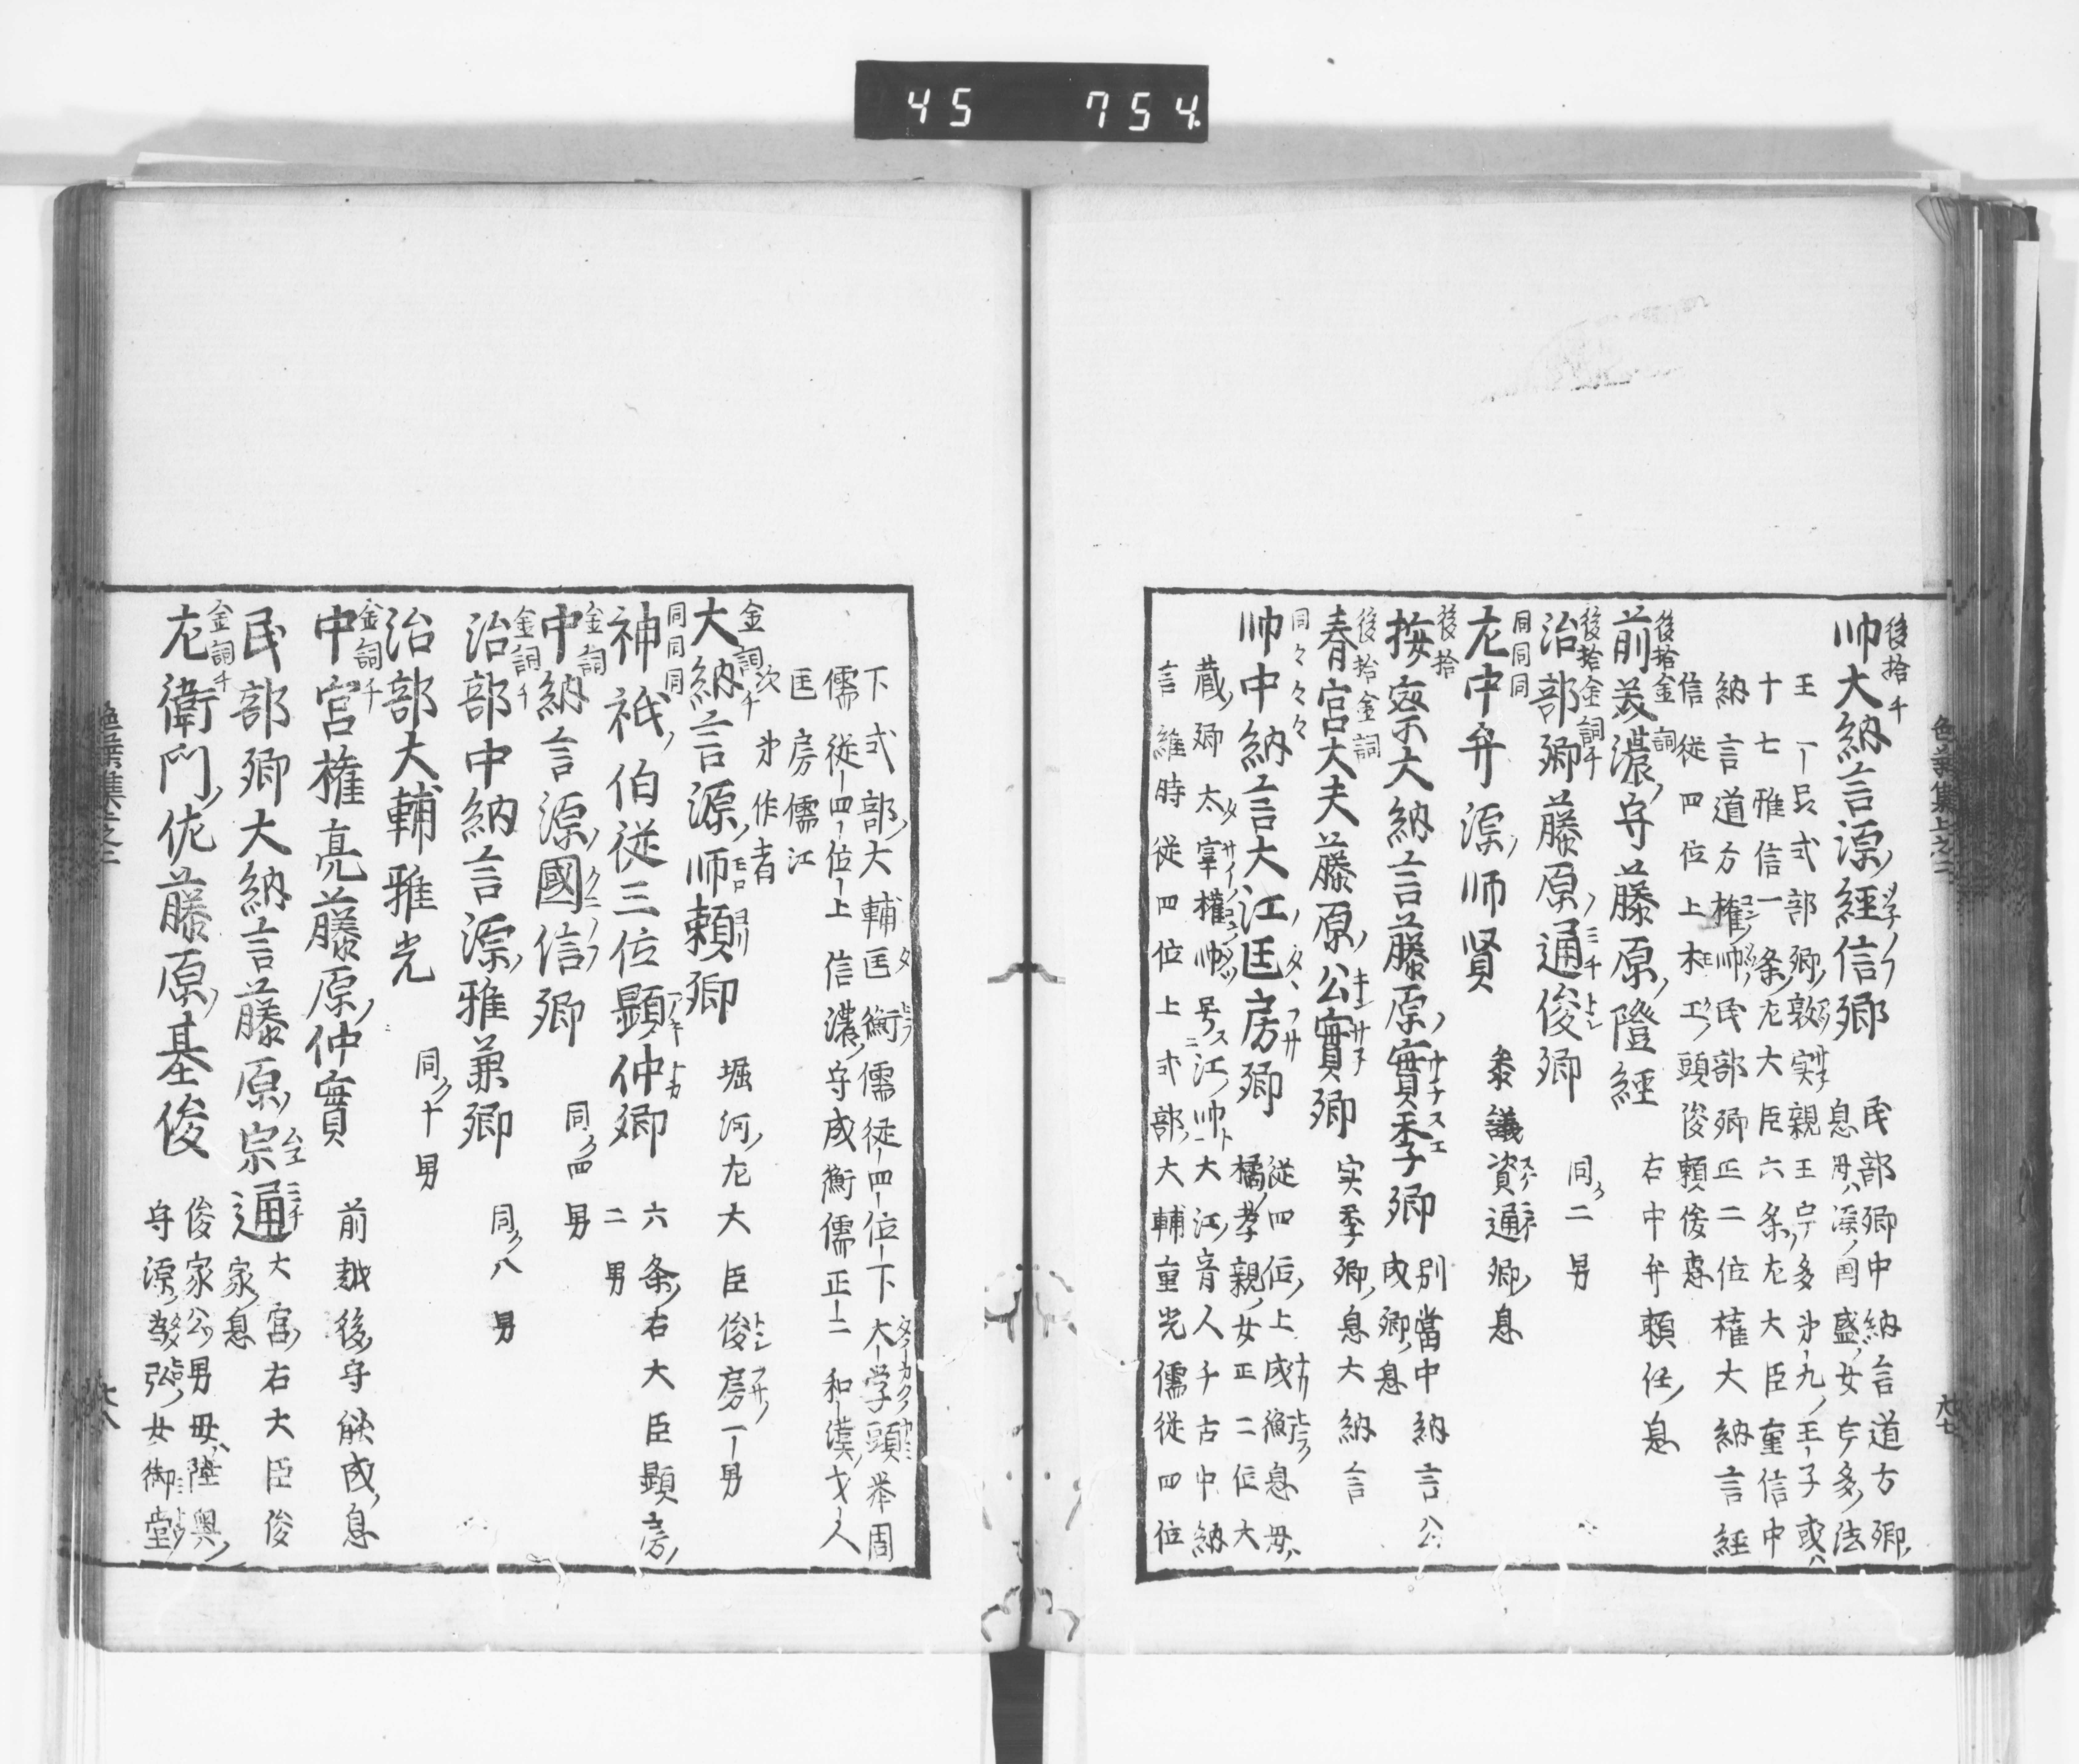 45 754
後拾千
帥大納言源経信卿
民部卿中納言道方卿
息母ハ源ノ国盛女宇多法
王一品式部卿敦実親王宇多第九ノ王子或ハ
十七雅信一条左大臣六条左大臣重信中
納言道方権帥民部卿正二位権大納言経
信従四位上木工頭俊頼俊恵
後拾金詞
前美濃守藤原隆経
右中弁頼任息
後拾金詞千
治部卿藤原ノ通俊卿
同二男
同同同
左中弁源ノ師賢
参議資通卿息
後拾
按察大納言藤原實季卿
別當中納言公
成卿息
後拾金詞
春宮大夫藤原公實卿
実季卿息大納言
同々々々
帥中納言大江匡房卿
従四位上成衡息母ハ
橘ノ孝親女正二位大
蔵卿太宰権帥号ス江ノ帥ト大江音人千古中納
言維時従四位上式部大輔重光儒従四位
下式部大輔匡衡儒従四位下大学頭挙周
儒従四位上信濃守成衡儒正二和漢才人
匡房儒江
次第作者
金詞千
大納言源師頼卿
堀河左大臣俊房一男
同同同
神祇伯従三位顕仲卿
六条右大臣顕房
二男
金詞
中納言源國信卿
同四男
金詞千
治部中納言源雅兼卿
同八男
治部大輔雅光
同十男
金詞千
中宮権亮藤原仲實
前越後守能成息
民部卿大納言藤原宗通
大宮右大臣俊
家息
金詞千
左衛門佐藤原基俊
俊家公男母ハ陸奥
守源ノ女御堂